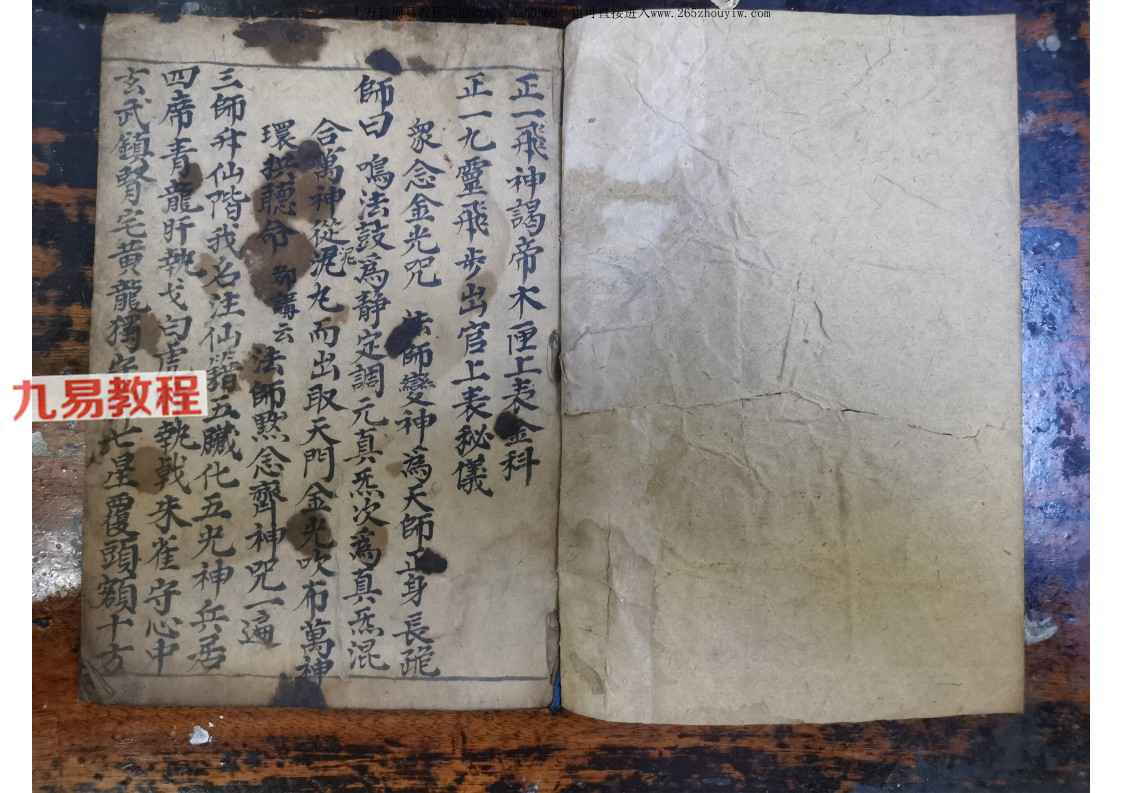 正一飛神謁帝木匣上表金科
正一九靈飛步出官上表秘儀
衆念金光咒 法師變神為天師正身長跪
師曰 鳴法鼓為静定調元真炁次為真炁混
合萬神從泥丸而出取天門金光吹布萬神
泥
環拱聽命 講云 法師黙念齊神咒一遍
三師升仙階我名注仙籍五臟化五光神兵居
四席青龍肝執戈白虎執戟朱雀守心中
玄武鎮腎宅黄龍獨 星覆頭額十方
九易教程
www.265zhouyiw.com